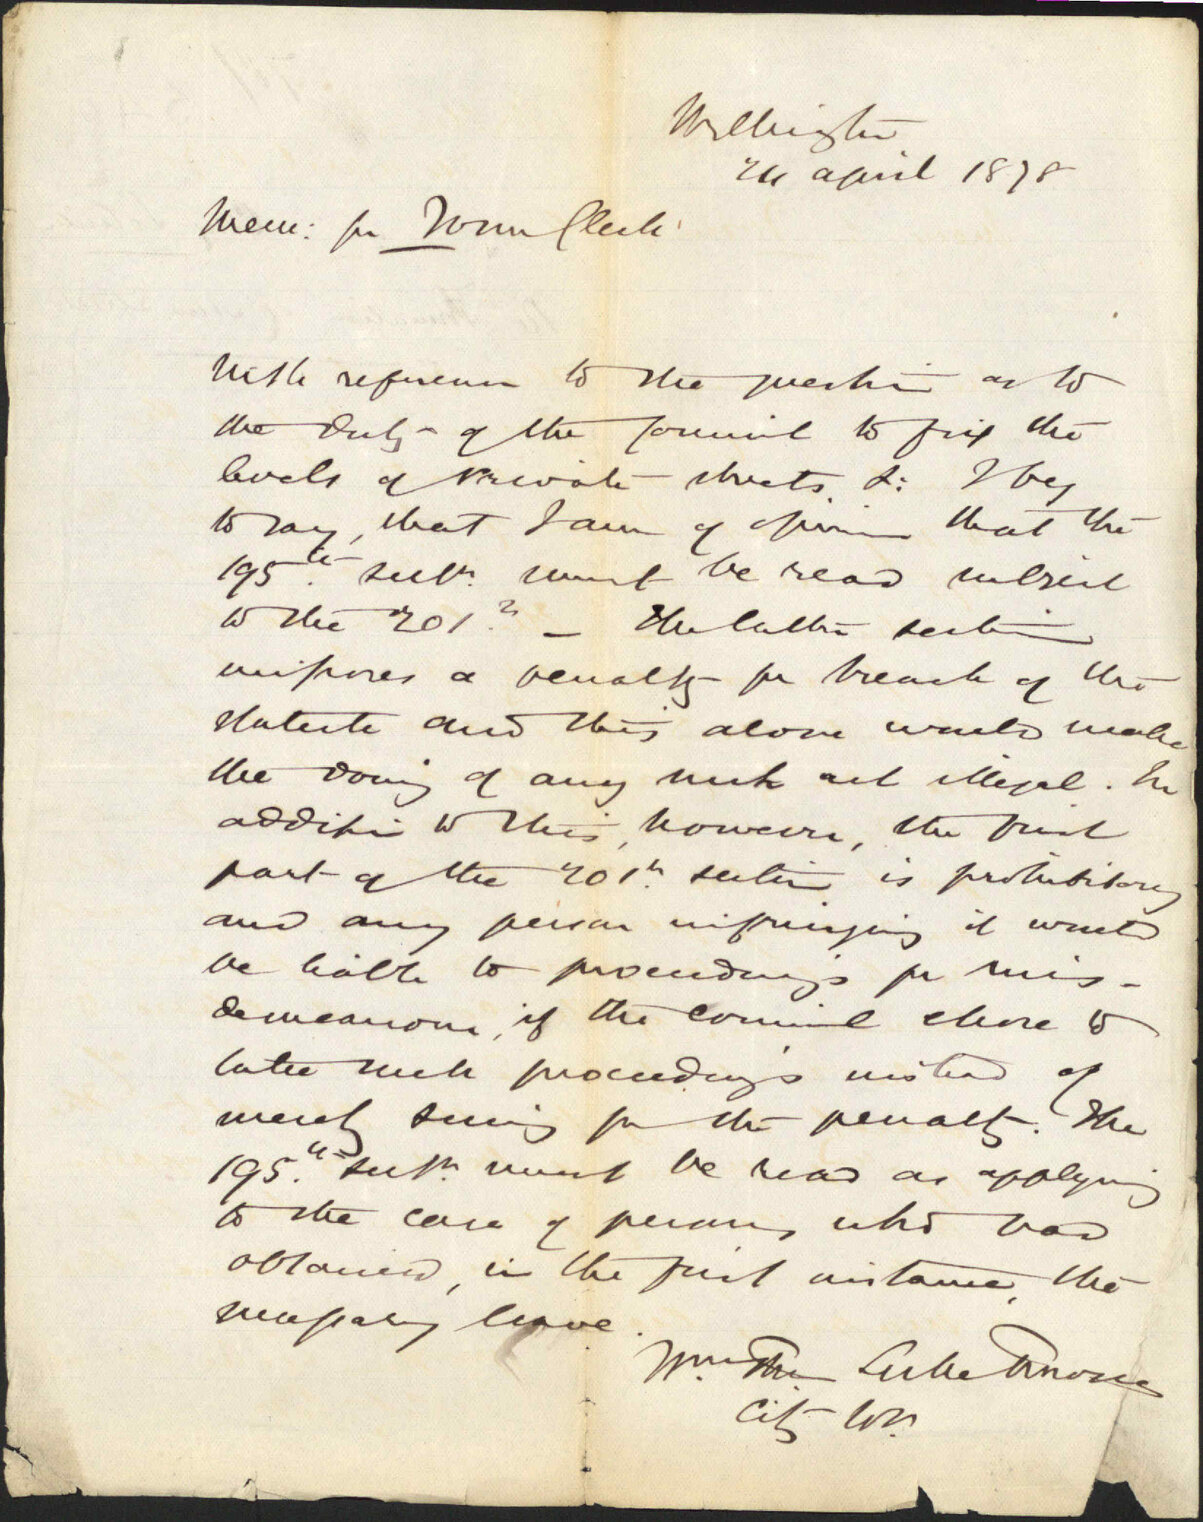 Wellington
24 April 1878
Mem: for Town Clerk
With reference to the question as to
the duty of the Council to fix the
levels of private streets &: I beg
to say, that I am of opinion that the
195.th sectn. must be read subject
to the 201.st — The latter section
imposes a penalty for breach of the
statute and this alone would make
the doing of any such act illegal. In
addition to this, however, the first
part of the 201st. section is prohibitory
and any person infringing it would
be liable to proceedings for mis-
demeanour, if the Council chose to
take such proceedings instead of
merely suing for the penalty. The
195.th sectn. must be read as applying
to the case of persons who had
obtained, in the first instance, the
necessary leave.
Wm. Thos. Locke Travers
City Solr.